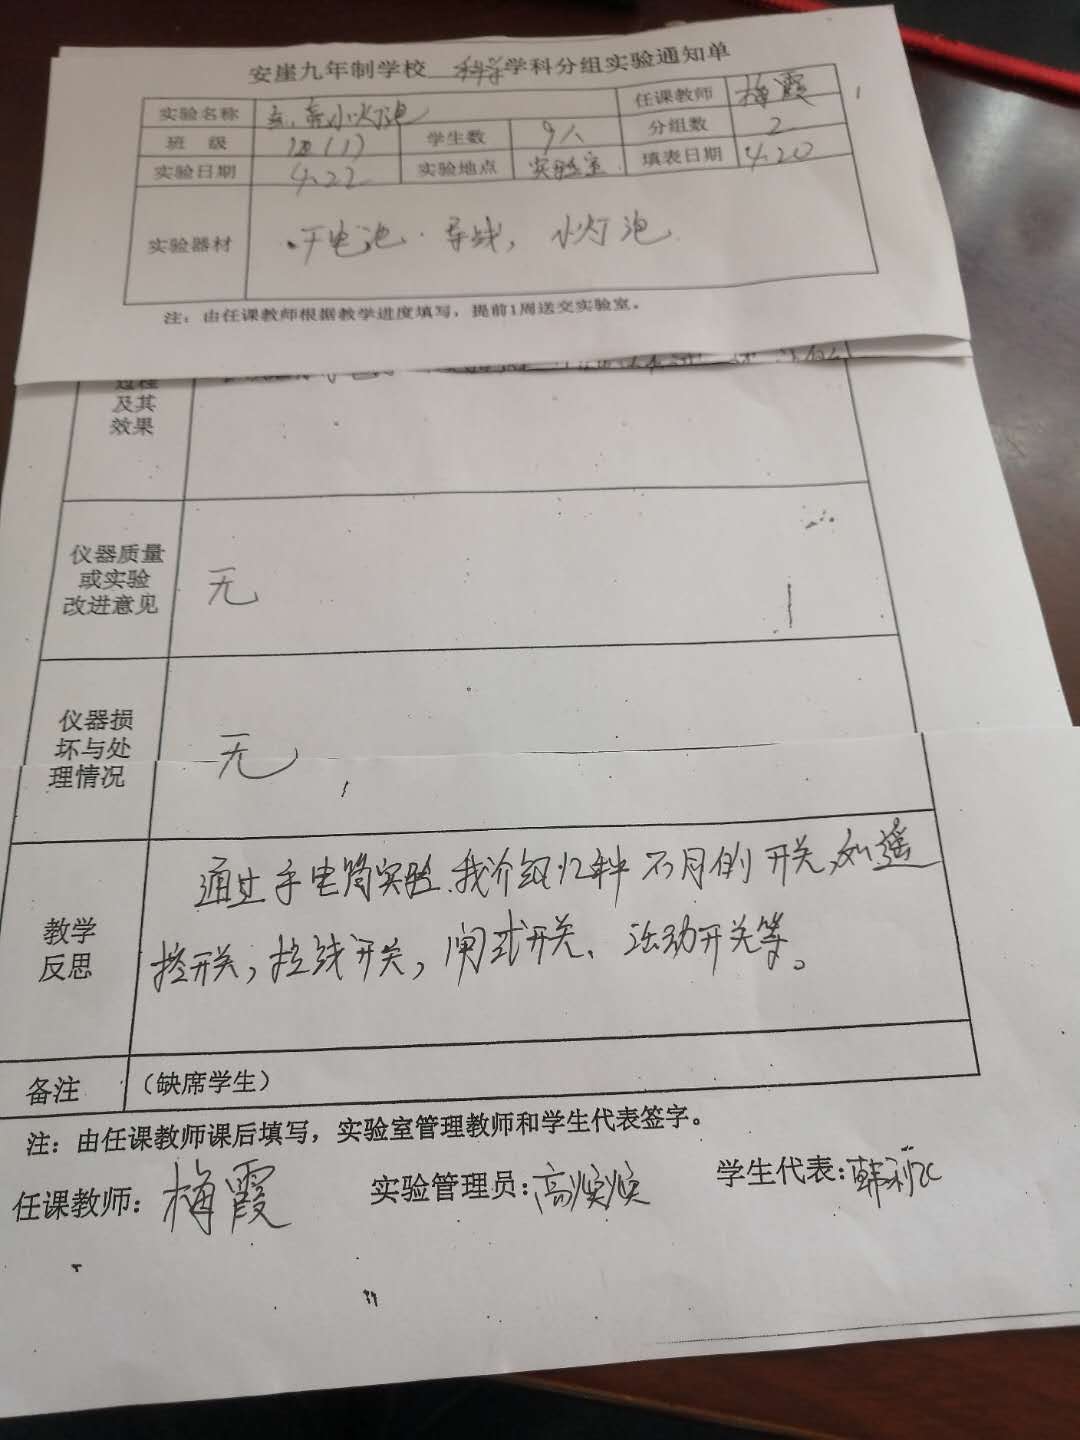 安崖九年制学校 科学学科分组实验通知单
实验名称 点亮小灯泡 任课教师 梅霞
班 级 四(1) 学生数 9人 分组数 2
实验日期 4.22 实验地点 实验室 填表日期 4.20
实验器材 干电池.导线，小灯泡
注：由任课教师根据教学进度填写，提前1周送交实验室。
过程
及其
效果
仪器质量
或实验
改进意见
无
仪器损
坏与处
理情况
无
教学
反思
通过手电筒实验.我介绍 种不同的开关，如遥
控开关，拉线开关，闸式开关、活动开关等。
备注 （缺席学生）
注：由任课教师课后填写，实验室管理教师和学生代表签字。
任课教师：梅霞 实验管理员：高焕焕 学生代表：韩